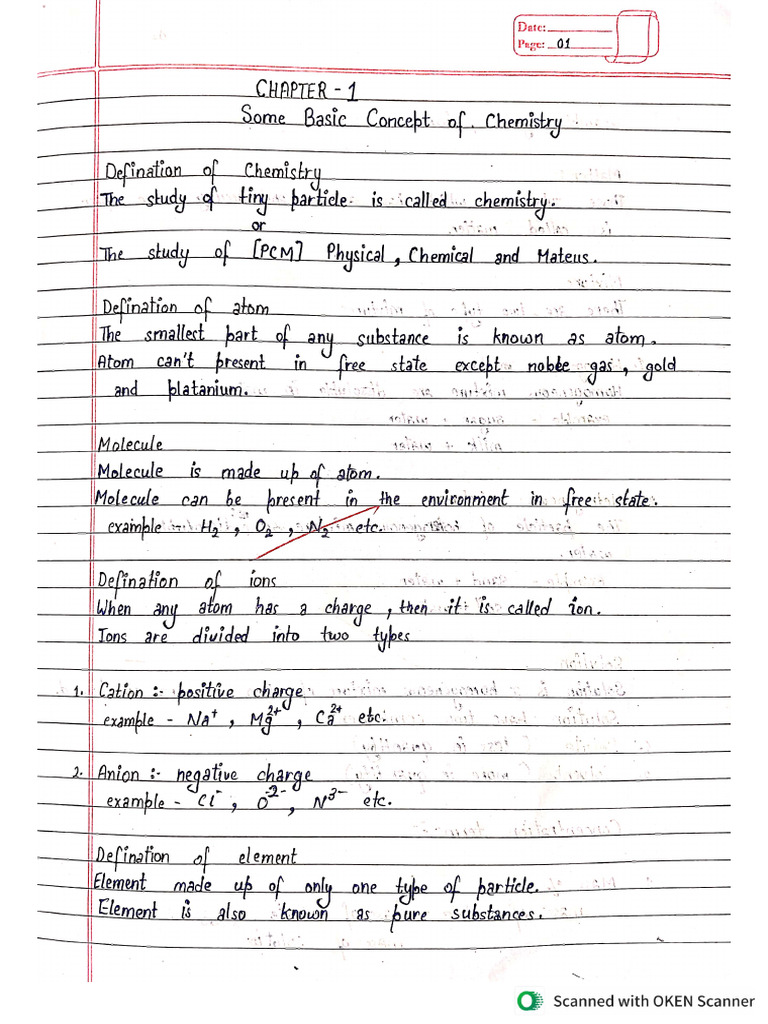 Date:
Page: 01
CHAPTER - 1
Some Basic Concept of Chemistry
Defination of Chemistry
The study of tiny particle is called chemistry.
or
The study of [PCM] Physical, Chemical and Mateus.
Defination of atom
The smallest part of any substance is known as atom.
Atom can't present in free state except noble gas, gold
and platanium.
Molecule
Molecule is made up of atom.
Molecule can be present in the environment in free state.
example - H₂, O₂, N₂ etc.
Defination of ions
When any atom has a charge, then it is called ion.
Ions are divided into two types
1. Cation :- positive charge
example - Na⁺, Mg²⁺, Ca²⁺ etc.
2. Anion :- negative charge
example - Cl⁻, O²⁻, N³⁻ etc.
Defination of element
Element made up of only one type of particle.
Element is also known as pure substances.
Scanned with OKEN Scanner